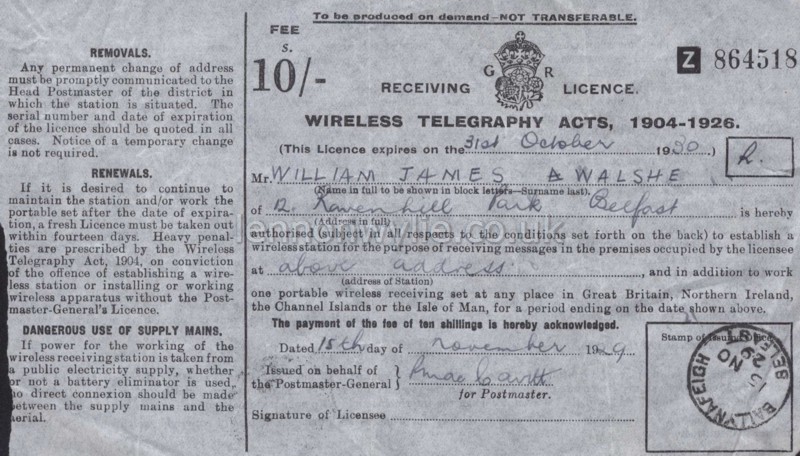 REMOVALS.
Any permanent change of address
must be promptly communicated to the
Head Postmaster of the district in
which the station is situated. The
serial number and date of expiration
of the licence should be quoted in all
cases. Notice of a temporary change
is not required.
RENEWALS.
If it is desired to continue to
maintain the station and/or work the
portable set after the date of expira-
tion, a fresh Licence must be taken out
within fourteen days. Heavy penal-
ties are prescribed by the Wireless
Telegraphy Act, 1904, on conviction
of the offence of establishing a wire-
less station or installing or working
wireless apparatus without the Post-
master-General's Licence.
DANGEROUS USE OF SUPPLY MAINS.
If power for the working of the
wireless receiving station is taken from
a public electricity supply, whether
or not a battery eliminator is used,
no direct connexion should be made
between the supply mains and the
aerial.
To be produced on demand—NOT TRANSFERABLE.
FEE
s.
10/-
G R
RECEIVING LICENCE.
Z 864518
WIRELESS TELEGRAPHY ACTS, 1904-1926.
(This Licence expires on the 31st October 1930.)
R.
Mr. WILLIAM JAMES WALSHE
(Name in full to be shown in block letters—Surname last).
of 12 Ravenhill Park Belfast is hereby
(Address in full)
authorised (subject in all respects to the conditions set forth on the back) to establish a
wireless station for the purpose of receiving messages in the premises occupied by the licensee
at above address, and in addition to work
(address of Station)
one portable wireless receiving set at any place in Great Britain, Northern Ireland,
the Channel Islands or the Isle of Man, for a period ending on the date shown above.
The payment of the fee of ten shillings is hereby acknowledged.
Dated 15th day of november 1929
Issued on behalf of
the Postmaster-General
for Postmaster.
Signature of Licensee
Stamp of Issuing Office.
BALLYNAFEIGH BELFAST
15 NO 29